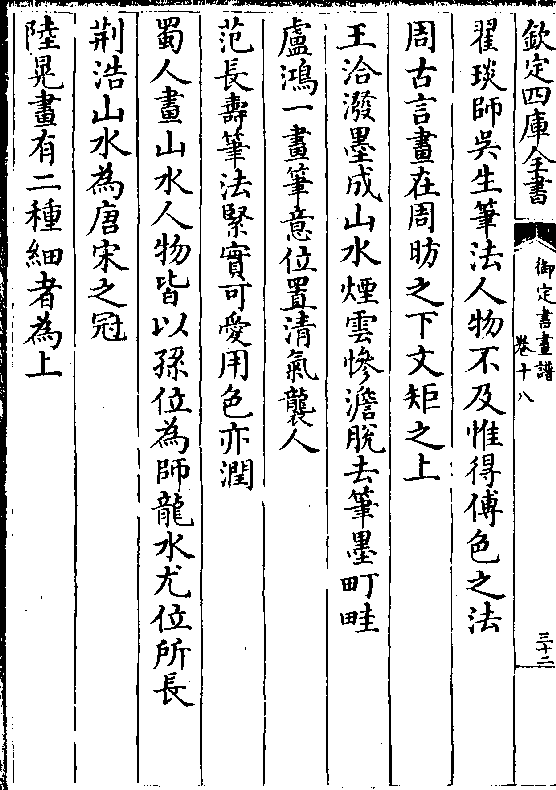 欽定四庫全書
御定書畫譜
卷十八
三十二
翟琰師吳生筆法人物不及惟得傅色之法
周古言畫在周昉之下文矩之上
王洽潑墨成山水煙雲慘澹脫去筆墨町畦
盧鴻一畫筆意位置清氣襲人
范長壽筆法緊實可愛用色亦潤
蜀人畫山水人物皆以孫位為師龍水尤位所長
荆浩山水為唐宋之冠
陸晃畫有二種細者為上